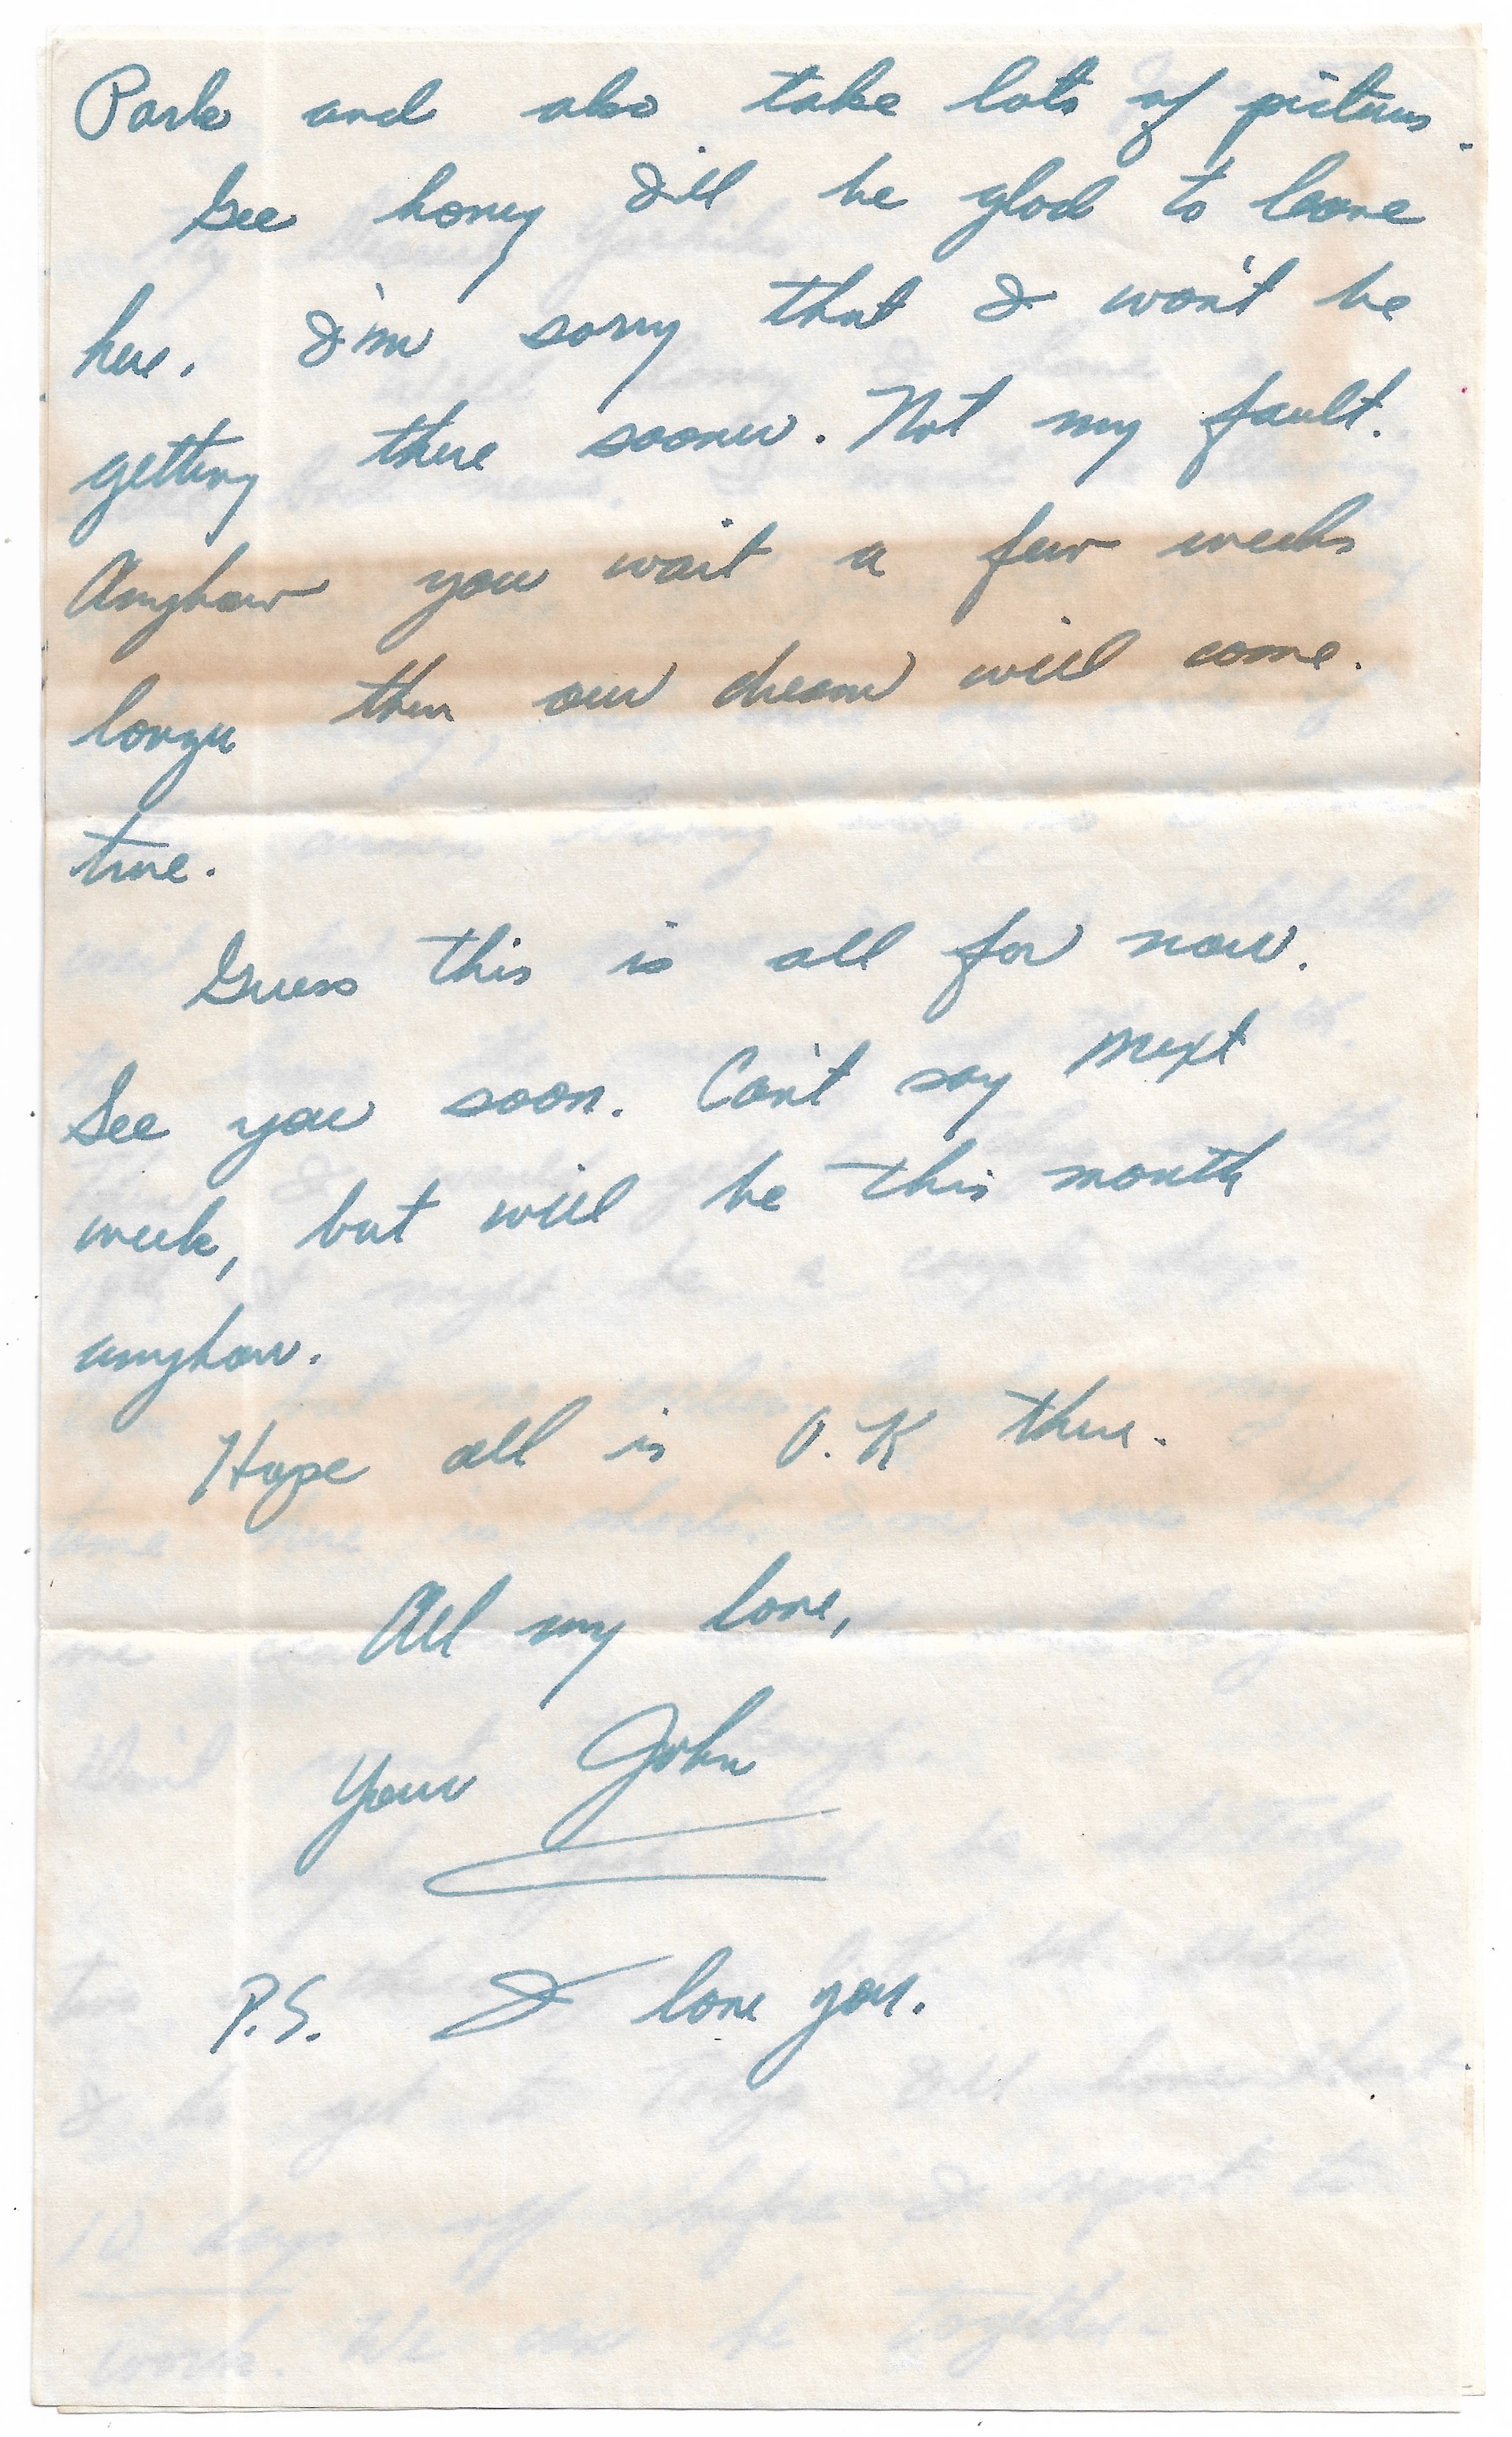 Park and also take lots of pictures.
Gee honey I'll be glad to leave
here. I'm sorry that I won't be
getting there sooner. Not my fault.
Anyhow you wait a few weeks
longer then our dream will come.
true.
Guess this is all for now.
See you soon. Can't say next
week, but will be this month
anyhow.
Hope all is O.K there.
All my love,
Your John
P.S. I love you.